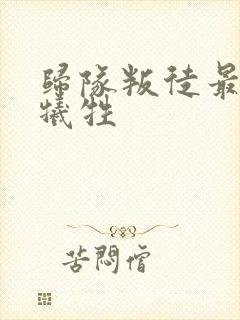 歸隊叛徒最
犧牲
苦悶僧